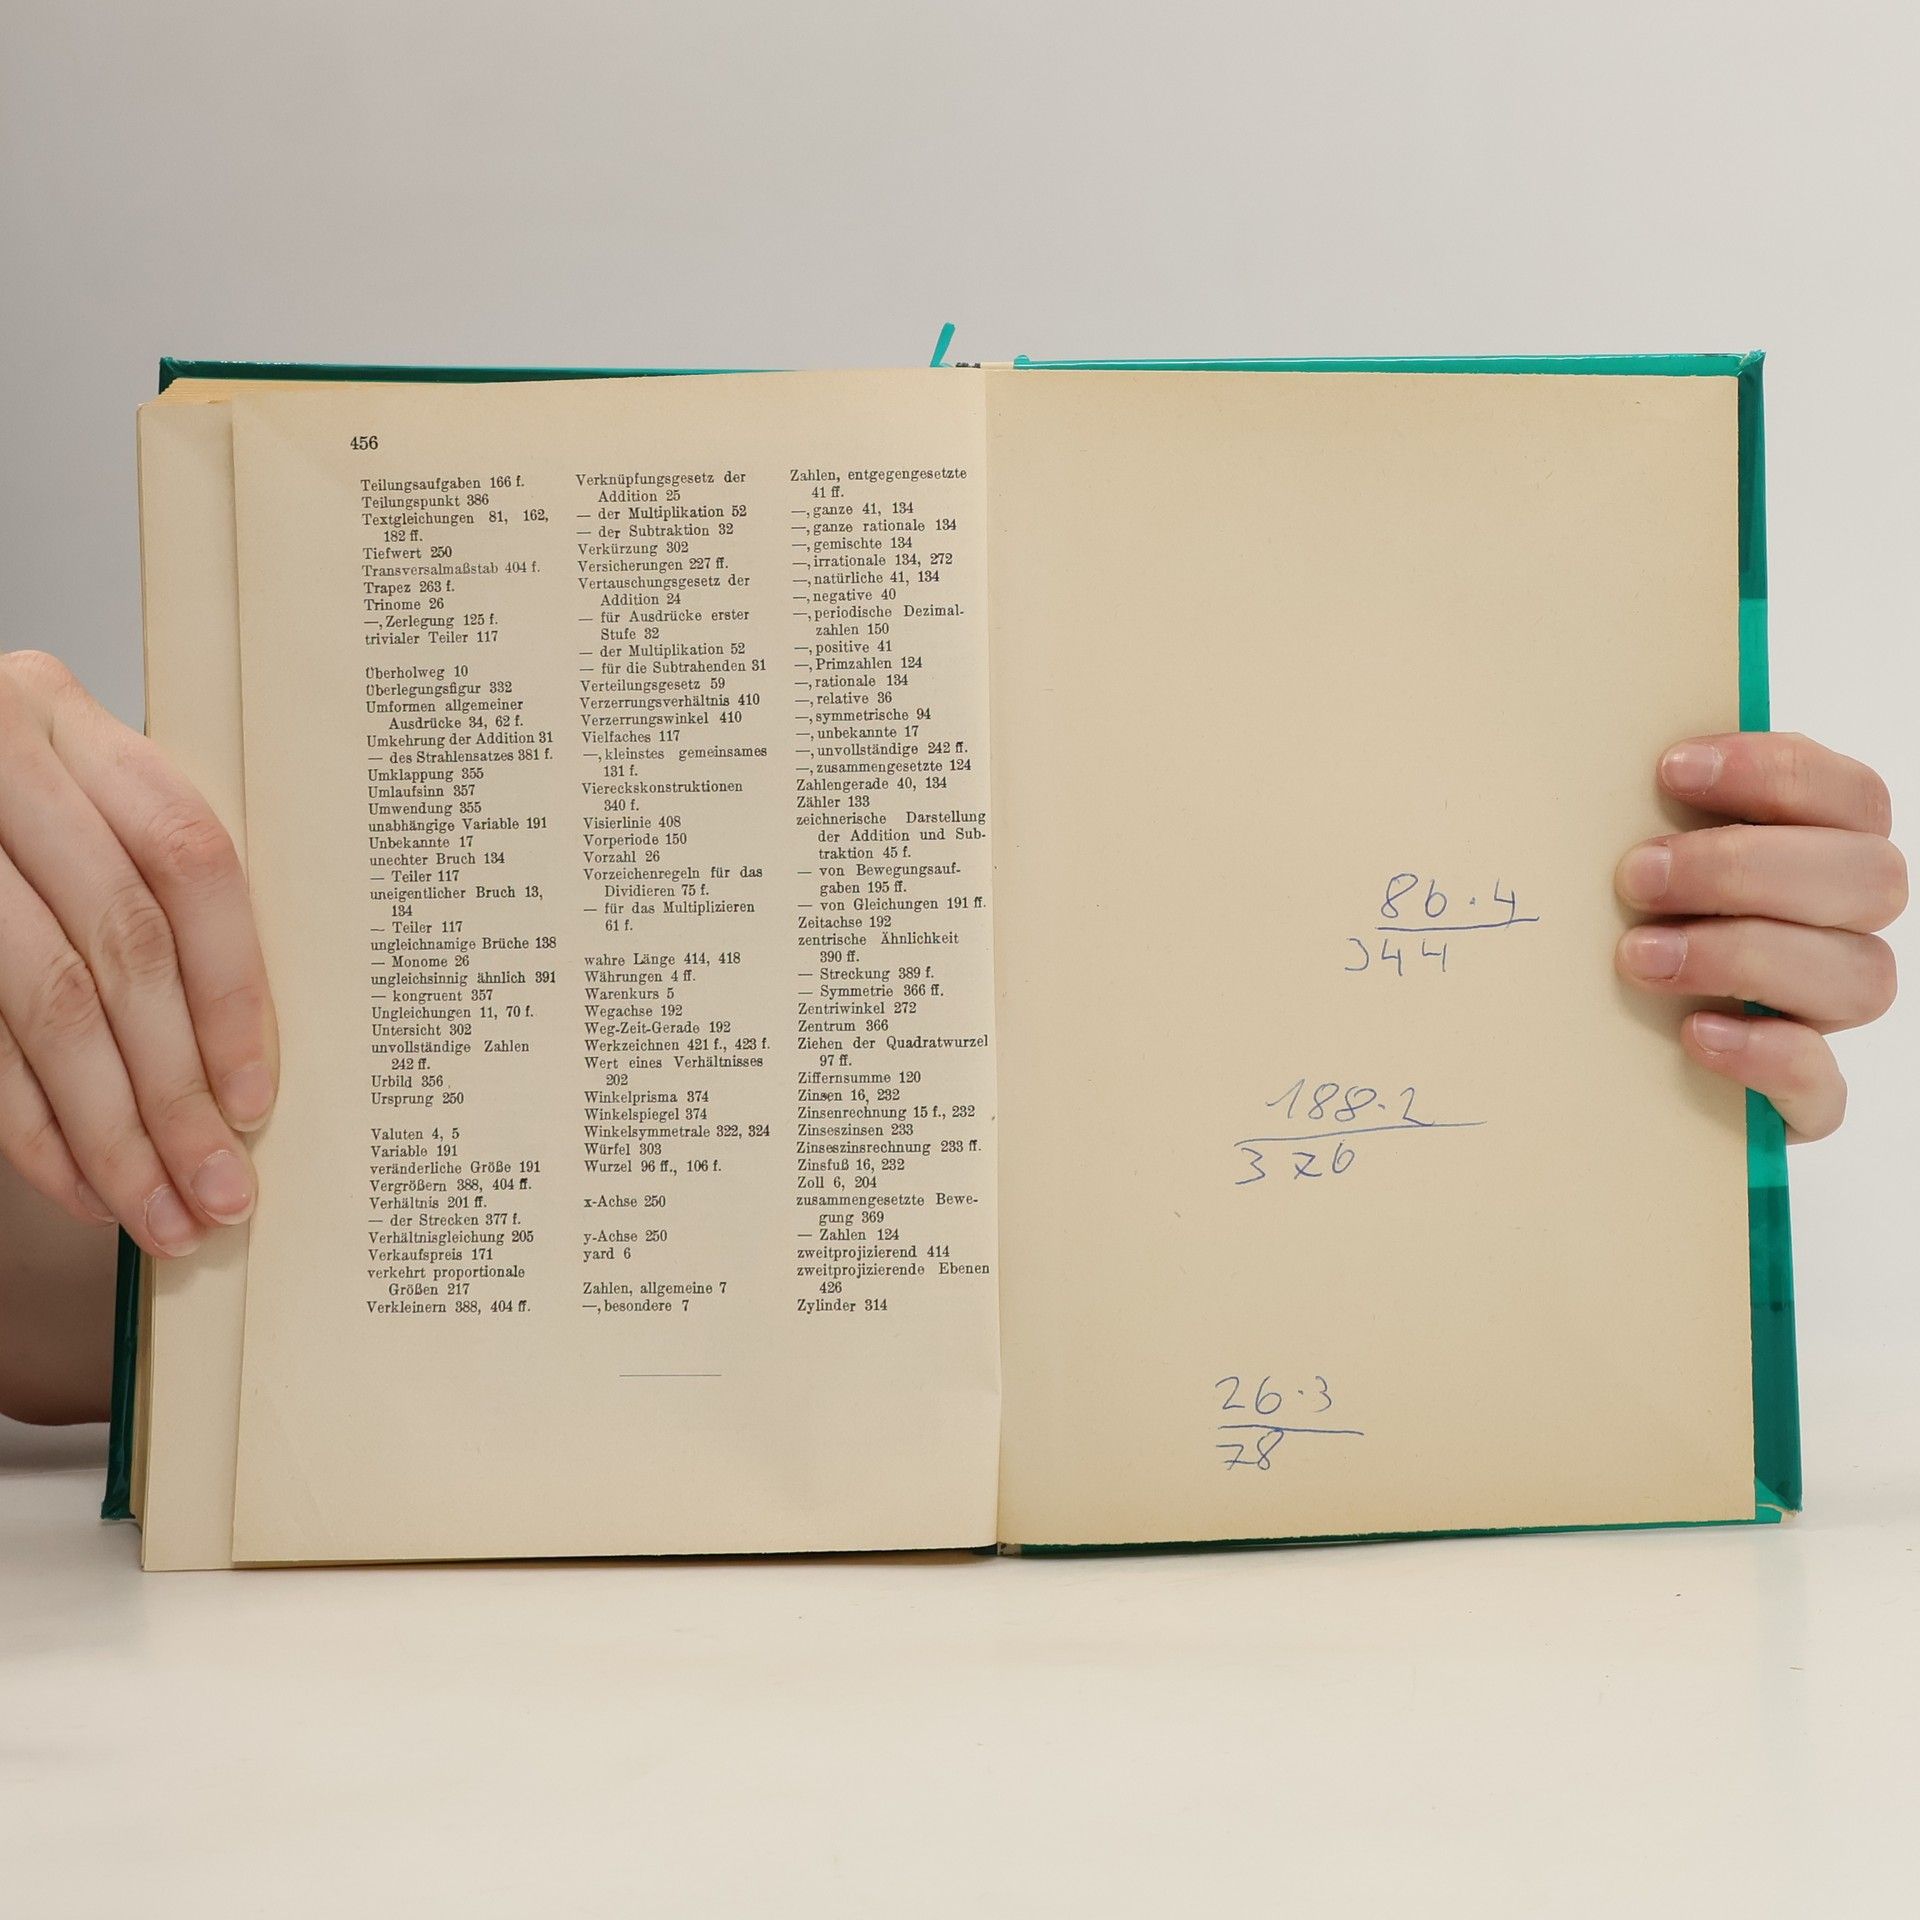 456
Teilungsaufgaben 166 f.
Teilungspunkt 386
Textgleichungen 81, 162,
182 ff.
Tiefwert 250
Transversalmaßstab 404 f.
Trapez 263 f.
Trinome 26
—, Zerlegung 125 f.
trivialer Teiler 117
Überholweg 10
Überlegungsfigur 332
Umformen allgemeiner
Ausdrücke 34, 62 f.
Umkehrung der Addition 31
— des Strahlensatzes 381 f.
Umklappung 355
Umlaufsinn 357
Umwendung 355
unabhängige Variable 191
Unbekannte 17
unechter Bruch 134
— Teiler 117
uneigentlicher Bruch 13,
134
— Teiler 117
ungleichnamige Brüche 138
— Monome 26
ungleichsinnig ähnlich 391
— kongruent 357
Ungleichungen 11, 70 f.
Untersicht 302
unvollständige Zahlen
242 ff.
Urbild 356
Ursprung 250
Valuten 4, 5
Variable 191
veränderliche Größe 191
Vergrößern 388, 404 ff.
Verhältnis 201 ff.
— der Strecken 377 f.
Verhältnisgleichung 205
Verkaufspreis 171
verkehrt proportionale
Größen 217
Verkleinern 388, 404 ff.
Verknüpfungsgesetz der
Addition 25
— der Multiplikation 52
— der Subtraktion 32
Verkürzung 302
Versicherungen 227 ff.
Vertauschungsgesetz der
Addition 24
— für Ausdrücke erster
Stufe 32
— der Multiplikation 52
— für die Subtrahenden 31
Verteilungsgesetz 59
Verzerrungsverhältnis 410
Verzerrungswinkel 410
Vielfaches 117
—, kleinstes gemeinsames
131 f.
Viereckskonstruktionen
340 f.
Visierlinie 408
Vorperiode 150
Vorzahl 26
Vorzeichenregeln für das
Dividieren 75 f.
— für das Multiplizieren
61 f.
wahre Länge 414, 418
Währungen 4 ff.
Warenkurs 5
Wegachse 192
Weg-Zeit-Gerade 192
Werkzeichnen 421 f., 423 f.
Wert eines Verhältnisses
202
Winkelprisma 374
Winkelspiegel 374
Winkelsymmetrale 322, 324
Würfel 303
Wurzel 96 ff., 106 f.
x-Achse 250
y-Achse 250
yard 6
Zahlen, allgemeine 7
—, besondere 7
Zahlen, entgegengesetzte
41 ff.
—, ganze 41, 134
—, ganze rationale 134
—, gemischte 134
—, irrationale 134, 272
—, natürliche 41, 134
—, negative 40
—, periodische Dezimal-
zahlen 150
—, positive 41
—, Primzahlen 124
—, rationale 134
—, relative 36
—, symmetrische 94
—, unbekannte 17
—, unvollständige 242 ff.
—, zusammengesetzte 124
Zahlengerade 40, 134
Zähler 133
zeichnerische Darstellung
der Addition und Sub-
traktion 45 f.
— von Bewegungsauf-
gaben 195 ff.
— von Gleichungen 191 ff.
Zeitachse 192
zentrische Ähnlichkeit
390 ff.
— Streckung 389 f.
— Symmetrie 366 ff.
Zentriwinkel 272
Zentrum 366
Ziehen der Quadratwurzel
97 ff.
Ziffernsumme 120
Zinsen 16, 232
Zinsenrechnung 15 f., 232
Zinseszinsen 233
Zinseszinsrechnung 233 ff.
Zinsfuß 16, 232
Zoll 6, 204
zusammengesetzte Bewe-
gung 369
— Zahlen 124
zweitprojizierend 414
zweitprojizierende Ebenen
426
Zylinder 314
86·4
344
188·2
376
26·3
78